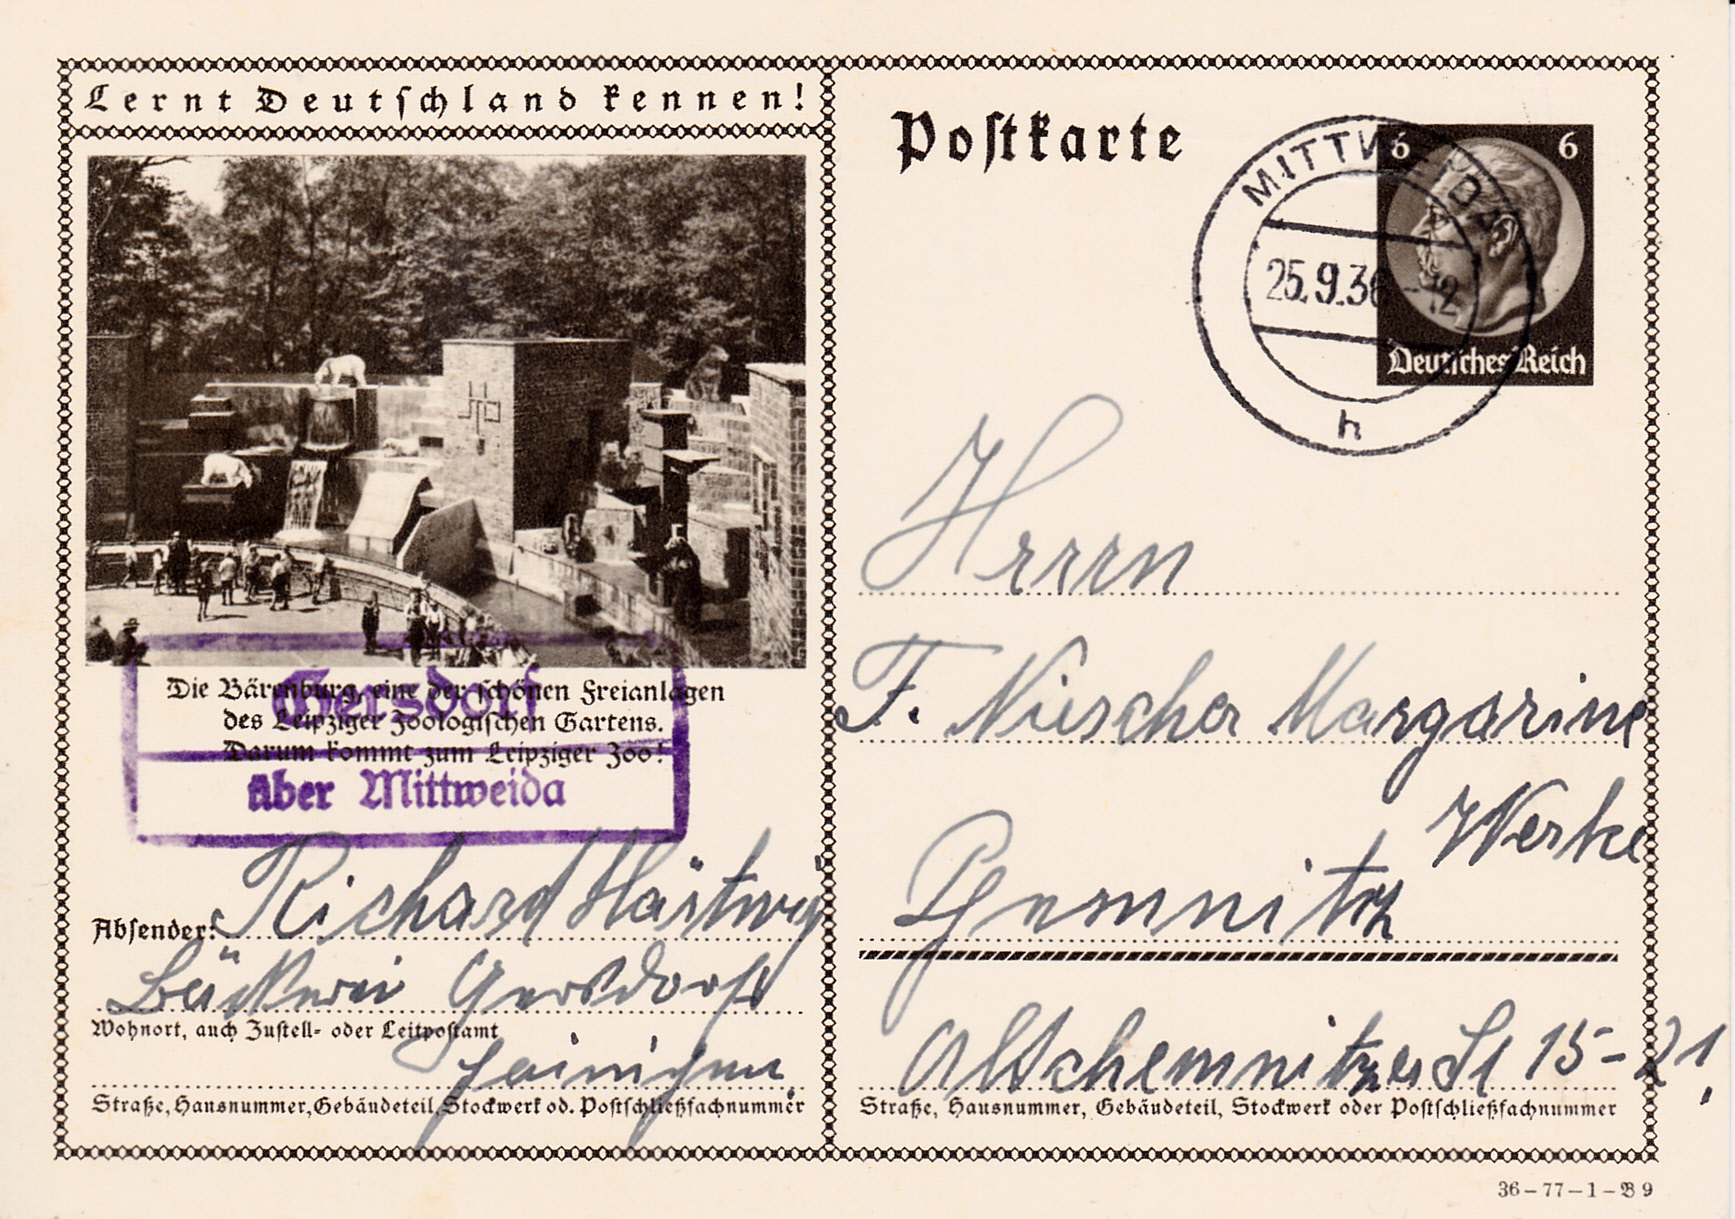 Lernt Deutschland kennen!
Die Bärenburg, eine der schönen Freianlagen
des Leipziger Zoologischen Gartens.
Darum kommt zum Leipziger Zoo!
Gersdorf
über Mittweida
Absender: Richard Härtwig
Bäckerei Gersdorf
Wohnort, auch Zustell- oder Leitpostamt
Straße, Hausnummer, Gebäudeteil, Stockwerk od. Postschließfachnummer
Postkarte
MITTWEIDA
25.9.36 -12
h
6 6
Deutsches Reich
Herrn
F. Niescher Margarine
Werke
Chemnitz
Altchemnitzer St 15-21.
Straße, Hausnummer, Gebäudeteil, Stockwerk oder Postschließfachnummer
36-77-1-B 9